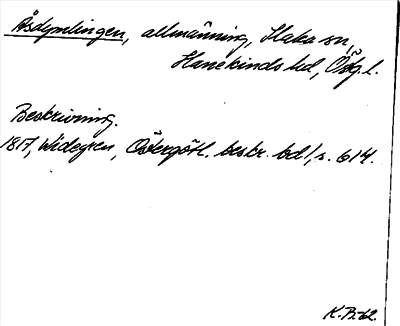 Åsdymlingen, allmänning, Slaka sn,
Hanekinds hd, Östg. l.
Beskrivning.
1817, Widegren, Östergötl. beskr. bd 1, s. 614.
K.B. 62.